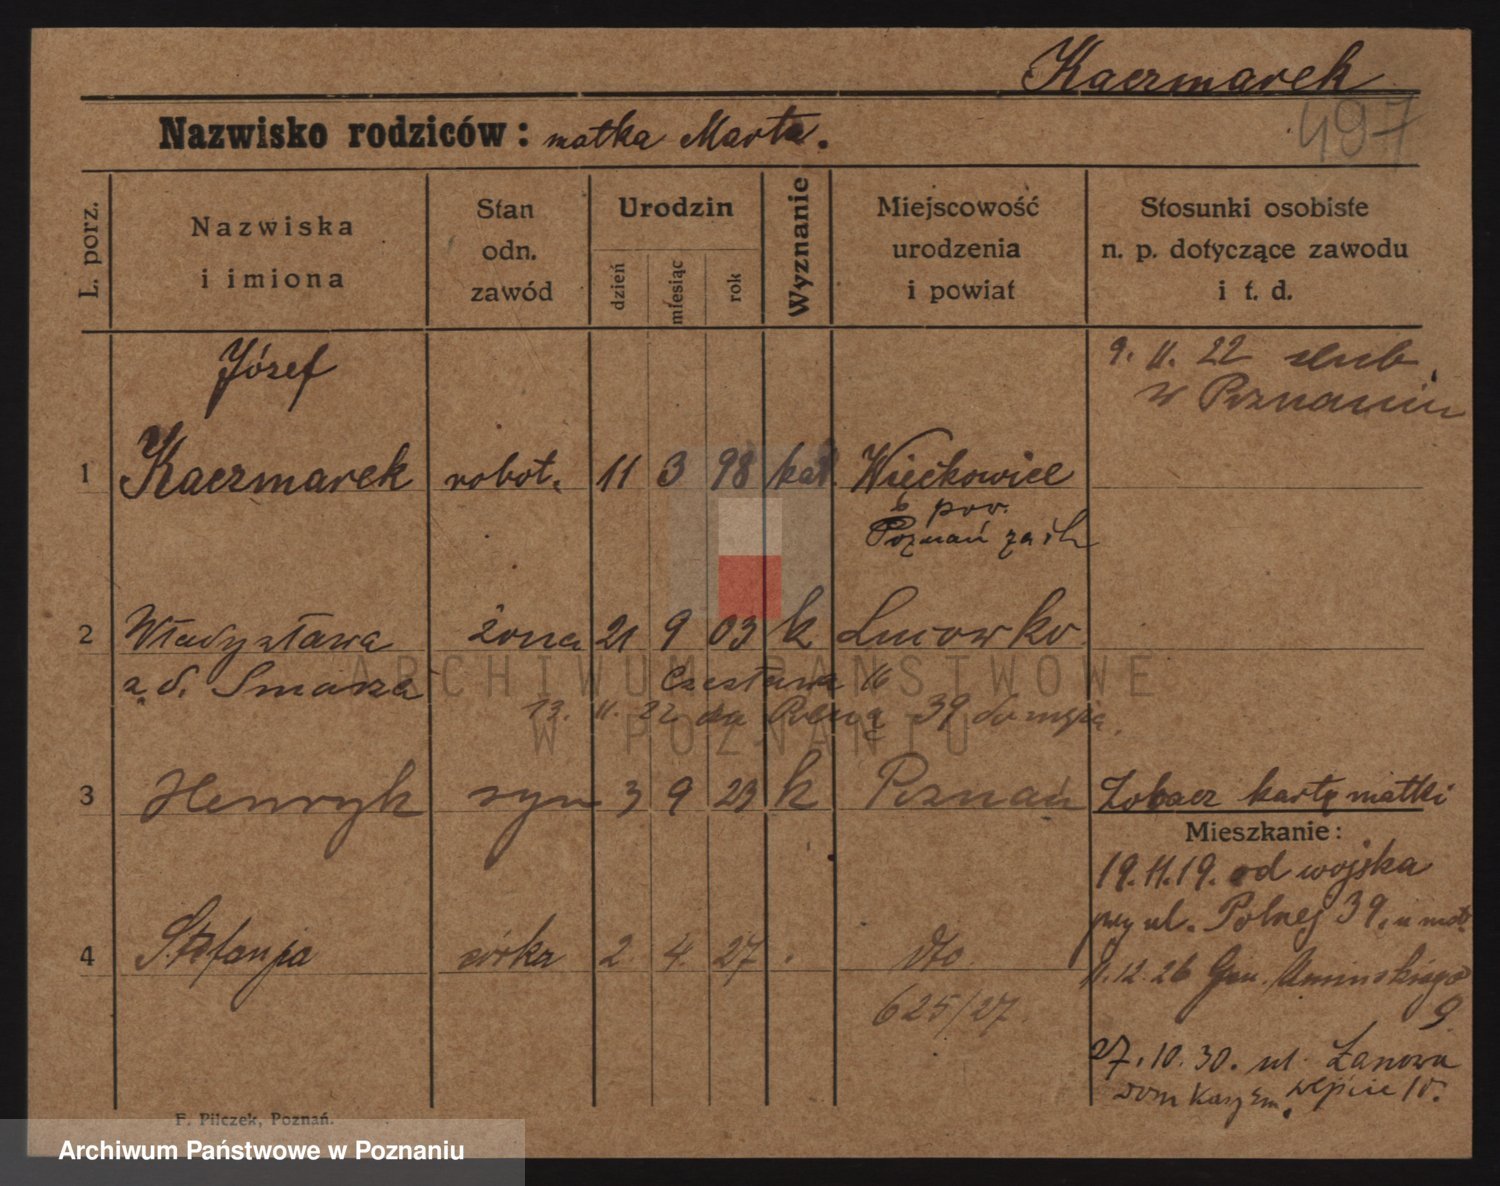 Kaczmarek
497
Nazwisko rodziców: matka Marta.
L. porz.
Nazwiska i imiona
Stan odn. zawód
Urodzin
dzień
miesiąc
rok
Wyznanie
Miejscowość urodzenia i powiat
Stosunki osobiste n. p. dotyczące zawodu i t. d.
9. 11. 22 slub
w Poznaniu
Józef
1 Kaczmarek robot. 11 3 98 kat. Więckowice
pow.
Poznań zach
2 Władysława żona 21 9 03 k Lwowko
z d. Smarza Czesława 16
13. 11. 22 na Polną 39 do męża.
3 Henryk syn 3 9 23 k Poznań Zobacz kartę matki
Mieszkanie:
19.11.19. od wojska
przy ul. Polnej 39. u mat.
4 Stefanja córka 2 4. 27 . dto
11.12.26 Gen. Umińskiego
9
625/27.
27.10.30. ul. Łanowa
dom
F. Pilczek, Poznań.
ARCHIWUM PAŃSTWOWE
W POZNANIU
Archiwum Państwowe w Poznaniu